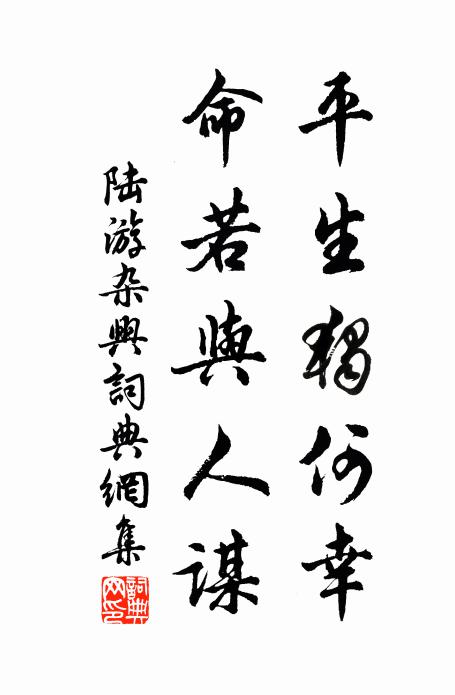 平生獨何幸
命若與人謀
陸游杂興詞典網集
詞典
网印